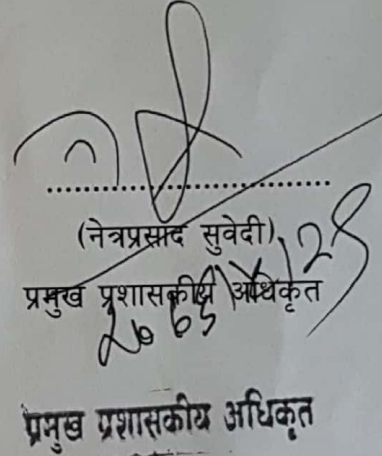 (नेत्रप्रसाद सुवेदी)
प्रमुख प्रशासकीय अधिकृत
प्रमुख प्रशासकीय अधिकृत